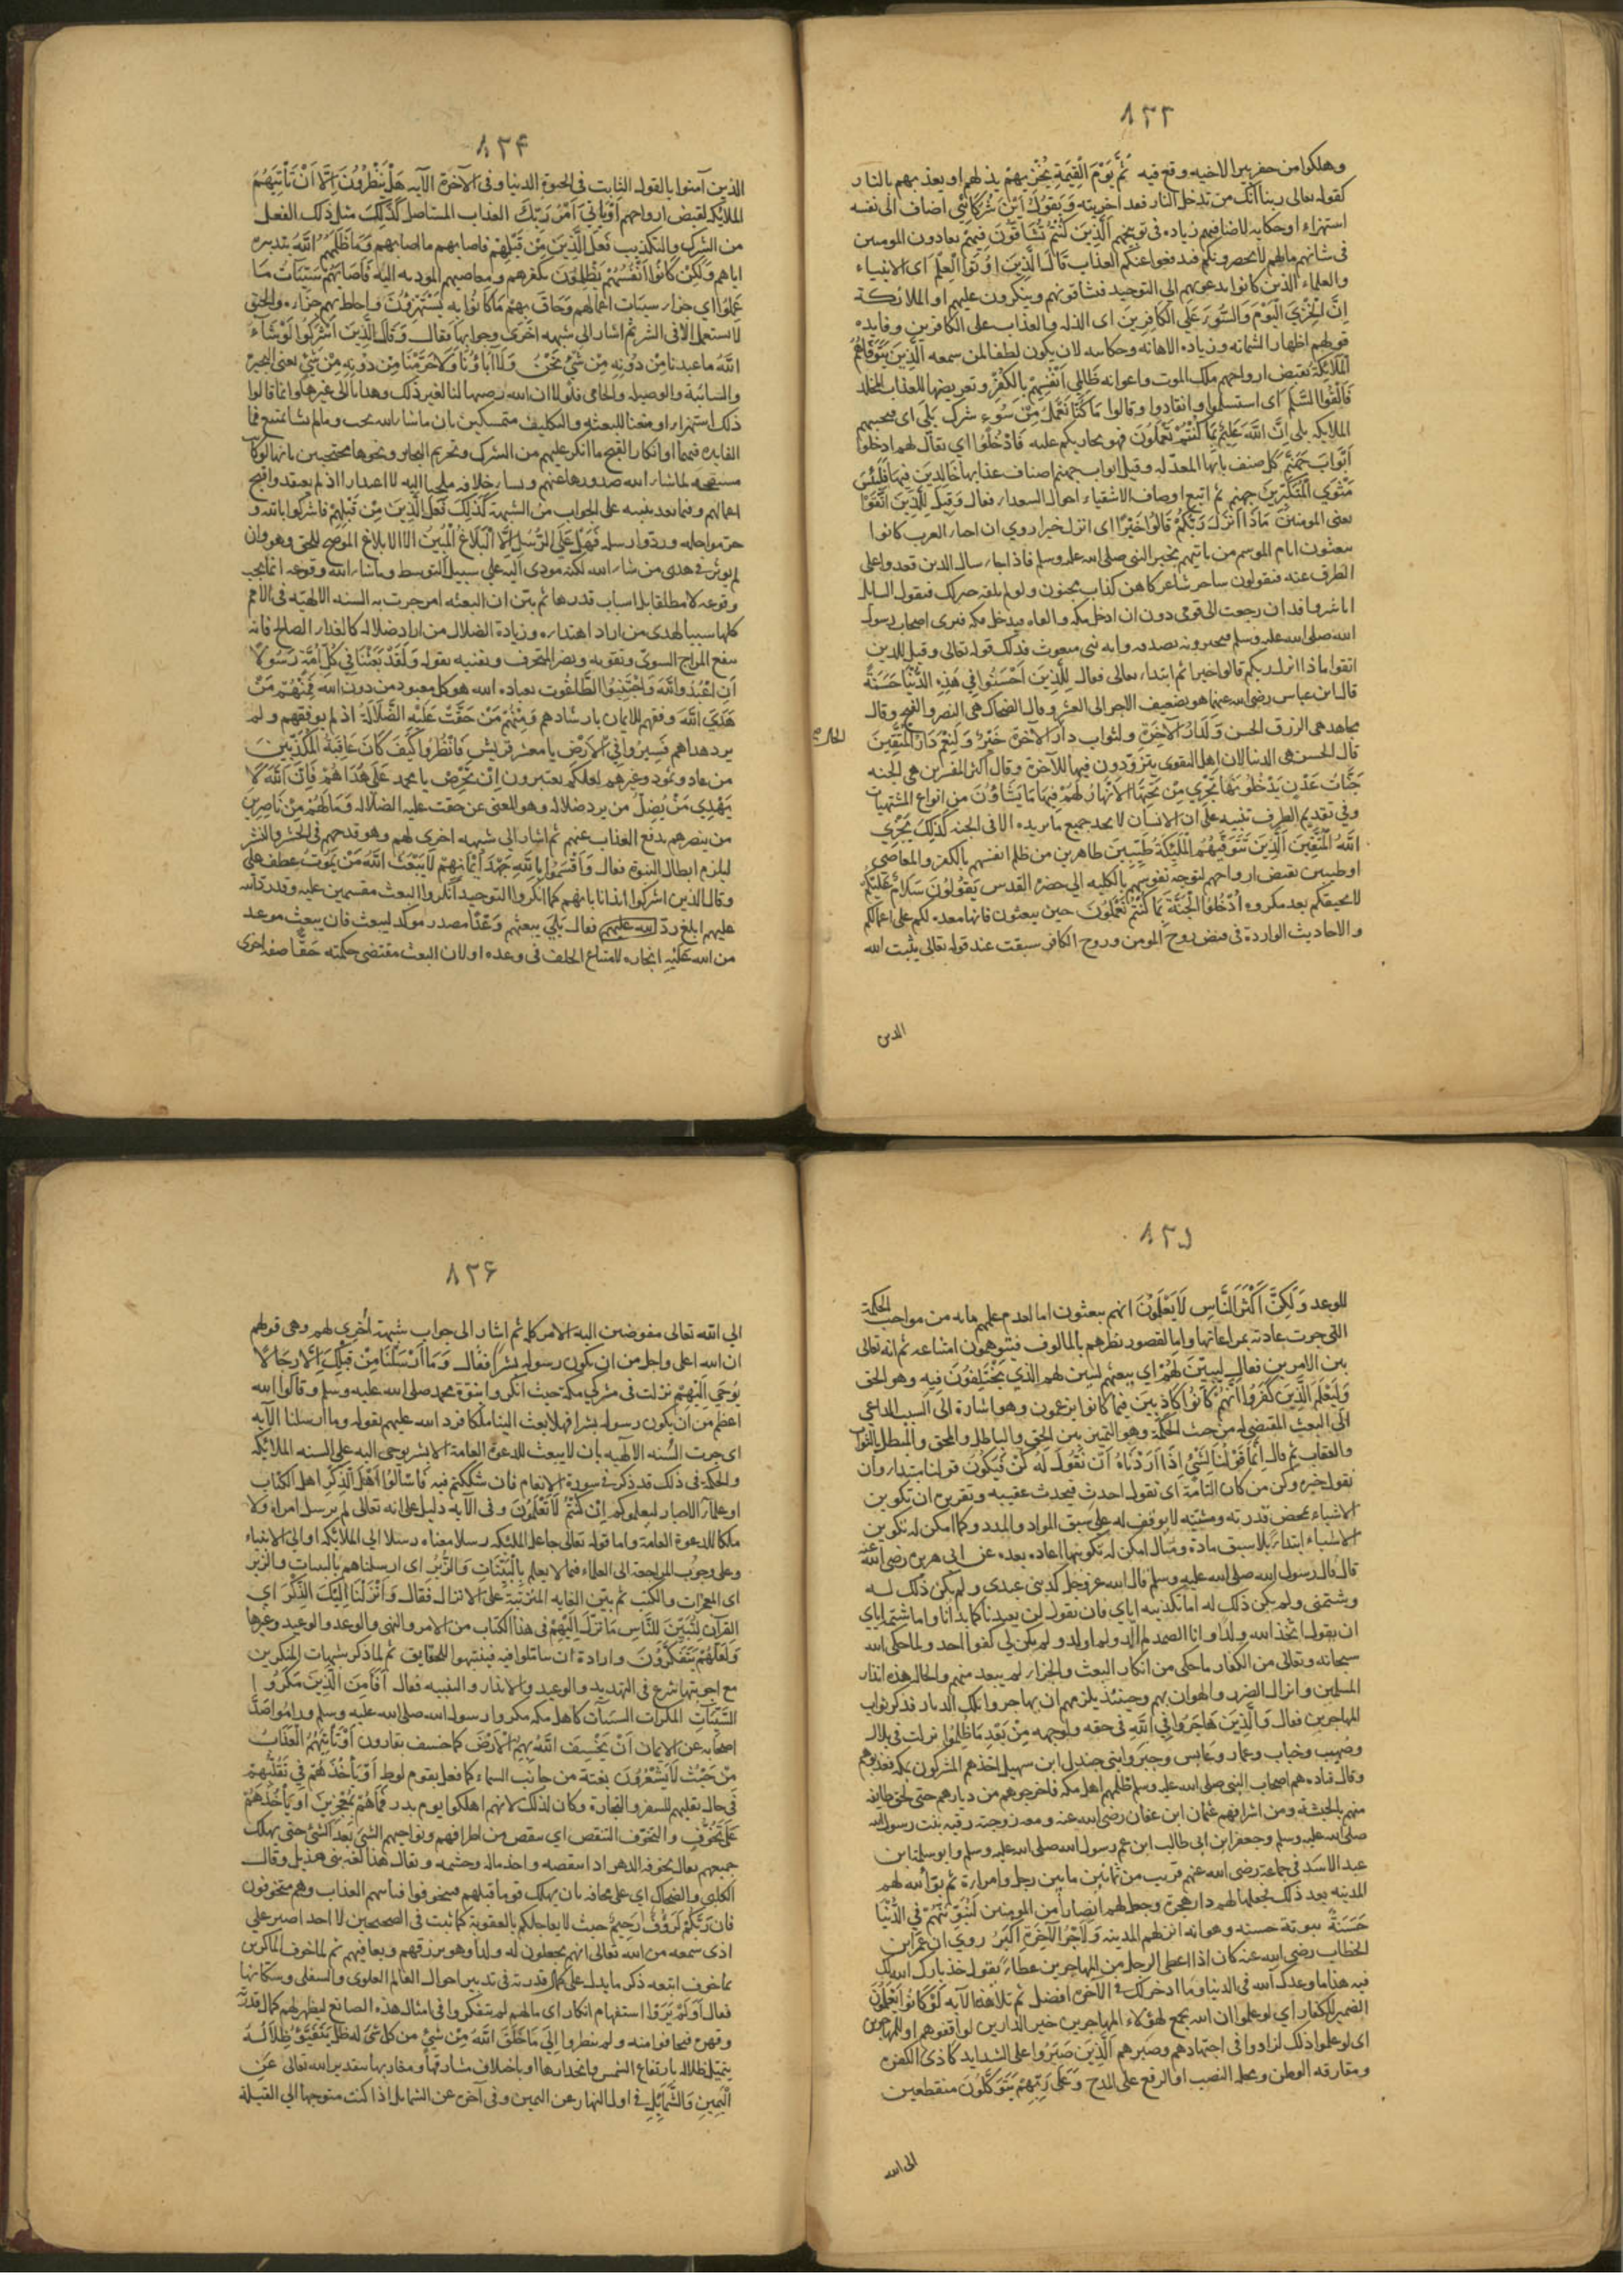 ٨٢٣
وهلكوا من حفر بيرا لاخيه وقع فيه ثُمَّ يَوْمَ الْقِيٰمَةِ يُخْزِيهِمْ يذلهم او يعذبهم بالنار
كقوله تعالى ربنا انك من تدخل النار فقد اخزيته وَيَقُولُ اَيْنَ شُرَكَائِيَ اضاف الى نفسه
استهزاء او حكاية لاضافتهم زيادة في توبيخهم اَلَّذِينَ كُنْتُمْ تُشَاقُّونَ فِيهِمْ تعادون المومنين
في شانهم مالهم لا يحضرونكم فيدفعوا عنكم العذاب قَالَ الَّذِينَ اُوتُوا الْعِلْمَ اى الانبياء
والعلماء الذين كانوا يدعونهم الى التوحيد فيشاقونهم وينكرون عليهم او الملائكة
اِنَّ الْخِزْيَ الْيَوْمَ وَالسُّوءَ عَلَى الْكَافِرِينَ اى الذلة والعذاب على الكافرين وفايدة
قولهم اظهار الشماتة وزيادة الاهانة وحكايته لان يكون لطفا لمن سمعه اَلَّذِينَ تَتَوَفَّاهُمُ
الْمَلَائِكَةُ بقبض ارواحهم ملك الموت واعوانه ظَالِمِي اَنْفُسِهِمْ بالكفر وتعريضها للعذاب المخلد
فَاَلْقَوُا السَّلَمَ اى استسلموا وانقادوا وقالوا مَا كُنَّا نَعْمَلُ مِنْ سُوءٍ شرك بَلَى اى فيجيبهم
الملايكة بلى اِنَّ اللّٰهَ عَلِيمٌ بِمَا كُنْتُمْ تَعْمَلُونَ فهو يجازيكم عليه فَادْخُلُوا اى يقال لهم ادخلوا
اَبْوَابَ جَهَنَّمَ كل صنف بابها المعد له وقيل ابواب جهنم اصناف عذابها خَالِدِينَ فِيهَا فَلَبِئْسَ
مَثْوَى الْمُتَكَبِّرِينَ جهنم ثم اتبع اوصاف الاشقياء احوال السعداء فقال وَقِيلَ لِلَّذِينَ اتَّقَوْا
يعنى المومنين مَاذَا اَنْزَلَ رَبُّكُمْ قَالُوا خَيْرًا اى انزل خيرا روي ان احياء العرب كانوا
يبعثون ايام الموسم من ياتيهم بخبر النبى صلى الله عليه وسلم فاذا جاء سال الذين قعدوا على
الطرق عنه فيقولون ساحر شاعر كاهن كذاب مجنون ولو لم تلقه خير لك فيقول السايل
انا شر وافد ان رجعت الى قومى دون ان ادخل مكة والقاه فيدخل مكة فيرى اصحاب رسول
الله صلى الله عليه وسلم فيخبرونه بصدقه وانه نبى مبعوث فذلك قوله تعالى وقيل للذين
اتقوا ماذا انزل ربكم قالوا خيرا ثم ابتداء تعالى فقال لِلَّذِينَ اَحْسَنُوا فِي هَذِهِ الدُّنْيَا حَسَنَةٌ
قال ابن عباس رضى الله عنهما هو تضعيف الاجر الى العشر وقال الضحاك هى النصر والفتح وقال
مجاهد هى الرزق الحسن وَلَدَارُ الْآخِرَةِ ولثواب دار الآخرة خَيْرٌ وَلَنِعْمَ دَارُ الْمُتَّقِينَ
قال الحسن هى الدنيا لان اهل التقوى يتزودون فيها للآخرة وقال اكثر المفسرين هى الجنة
جَنَّاتُ عَدْنٍ يَدْخُلُونَهَا تَجْرِي مِنْ تَحْتِهَا الْاَنْهَارُ لَهُمْ فِيهَا مَا يَشَاؤُنَ من انواع المشتهيات
وفي تقديم الظرف تنبيه على ان الانسان لا يجد جميع ما يريده الا في الجنة كَذٰلِكَ يَجْزِي
اللّٰهُ الْمُتَّقِينَ اَلَّذِينَ تَتَوَفّٰيهُمُ الْمَلٰئِكَةُ طَيِّبِينَ طاهرين من ظلم انفسهم بالكفر والمعاصى
او طيبين بقبض ارواحهم لتوجه نفوسهم بالكلية الى حضرة القدس يَقُولُونَ سَلَامٌ عَلَيْكُمْ
لا يحيقكم بعد مكروه ادْخُلُوا الْجَنَّةَ بِمَا كُنْتُمْ تَعْمَلُونَ حين يبعثون فانها معدة لكم على اعمالكم
والاحاديث الواردة في قبض روح المومن وروح الكافر سبقت عند قوله تعالى يثبت الله
الذين
٨٢۴
الذين آمنوا بالقول الثابت في الحيوة الدنيا وفى الآخرة الآية هَلْ يَنْظُرُونَ اِلَّا اَنْ تَأْتِيَهُمُ
الملائكة لقبض ارواحهم اَوْ يَأْتِيَ اَمْرُ رَبِّكَ العذاب المستاصل كَذٰلِكَ مثل ذلك الفعل
من الشرك والتكذيب فَعَلَ الَّذِينَ مِنْ قَبْلِهِمْ فاصابهم ما اصابهم وَمَا ظَلَمَهُمُ اللّٰهُ بتدميره
اياهم وَلَكِنْ كَانُوا اَنْفُسَهُمْ يَظْلِمُونَ بكفرهم ومعاصيهم المودية اليه فَاَصَابَهُمْ سَيِّئَاتُ مَا
عَمِلُوا اي جزاء سيئات اعمالهم وَحَاقَ بِهِمْ مَا كَانُوا بِهِ يَسْتَهْزِؤُنَ واحاط بهم جزاءه والحيق
لا يستعمل الا فى الشر ثم اشار الى شبهة اخرى وجوابها فقال وَقَالَ الَّذِينَ اَشْرَكُوا لَوْ شَاءَ
اللّٰهُ مَا عبدنا مِنْ دُونِهِ مِنْ شَيْءٍ نَحْنُ وَلَا آبَاؤُنَا وَلَا حَرَّمْنَا مِنْ دُونِهِ مِنْ شَيْءٍ يعنى البحيرة
والسائبة والوصيلة والحامى فلولا ان الله رضيها لنا لغير ذلك وهدانا الى غيرها وانما قالوا
ذلك استهزاء او منعا للبعثة والتكليف متمسكين بان ما شاء الله يجب وما لم يشا يمتنع فما
الفايدة فيهما او انكارا لقبح ما انكر عليهم من الشرك وتحريم البحاير ونحوها محتجين بانها لو كانت
مستقبحة لما شاء الله صدورها عنهم ولشاء خلافه ملجيا اليه لا اعتذارا اذ لم يعتقدوا قبح
اعمالهم وفيما بعد تنبيه على الجواب من الشبهة كَذٰلِكَ فَعَلَ الَّذِينَ مِنْ قَبْلِهِمْ فاشركوا بالله و
حرموا حله وردوا رسله فَهَلْ عَلَى الرُّسُلِ اِلَّا الْبَلَاغُ الْمُبِينُ الا الابلاغ الموضح للحق وهو وان
لم يوثر في هدى من شاء الله لكنه مودى اليه على سبيل التوسط وما شاء الله وقوعه انما يجب
وقوعه لا مطلقا بل باسباب قدرها ثم بين ان البعثة امر جرت به السنة الالهية فى الامم
كلها سببا لهدى من اراد اهتداءه وزيادة الضلال من اراد ضلاله كالغذاء الصالح فانه
ينفع المزاج السوى وتقويه ويضر المنحرف وتفنيه بقوله وَلَقَدْ بَعَثْنَا فِي كُلِّ اُمَّةٍ رَسُولًا
اَنِ اعْبُدُوا اللّٰهَ وَاجْتَنِبُوا الطَّاغُوتَ عبادة الله هو كل معبود من دون الله فَمِنْهُمْ مَنْ
هَدَى اللّٰهُ وفقهم للايمان بارشادهم وَمِنْهُمْ مَنْ حَقَّتْ عَلَيْهِ الضَّلَالَةُ اذ لم يوفقهم ولم
يرد هداهم فَسِيرُوا فِي الْاَرْضِ يا معشر قريش فَانْظُرُوا كَيْفَ كَانَ عَاقِبَةُ الْمُكَذِّبِينَ
من عاد وثمود وغيرهم لعلكم تعتبرون اِنْ تَحْرِصْ يا محمد عَلَى هُدَاهُمْ فَاِنَّ اللّٰهَ لَا
يَهْدِي مَنْ يُضِلُّ من يرد ضلاله وهو المعنى عن حقت عليه الضلالة وَمَا لَهُمْ مِنْ نَاصِرِينَ
من ينصرهم بدفع العذاب عنهم ثم اشار الى شبهة اخرى لهم وهو قدحهم فى الحشر والنشر
ليلزم ابطال النبوة فقال وَاَقْسَمُوا بِاللّٰهِ جَهْدَ اَيْمَانِهِمْ لَا يَبْعَثُ اللّٰهُ مَنْ يَمُوتُ عطف على
وقال الذين اشركوا ايذانا بانهم كما انكروا التوحيد انكروا البعث مقسمين عليه وقد رد الله
عليهم ابلغ رد فقال بَلَى يبعثهم وَعْدًا مصدر موكد ليبعث فان يبعث موعد
من الله عَلَيْهِ انجازه لامتناع الخلف فى وعده او لان البعث مقتضى حكمته حَقًّا صفة اخرى
٨٢٥
للوعد وَلَكِنَّ اَكْثَرَ النَّاسِ لَا يَعْلَمُونَ انهم يبعثون اما لعدم علمهم بانه من مواجب الحكمة
التى جرت عادته بمراعاتها واما لقصور نظرهم بالمالوف فيتوهمون امتناعه ثم انه تعالى
بين الامرين فقال لِيُبَيِّنَ لَهُمْ اى يبعثهم ليبين لهم الذي يَخْتَلِفُونَ فِيهِ وهو الحق
وَلِيَعْلَمَ الَّذِينَ كَفَرُوا اَنَّهُمْ كَانُوا كَاذِبِينَ فيما كانوا يزعمون وهو اشارة الى السبب الداعى
الى البعث المقتضى له من حيث الحكمة وهو التمييز بين الحق والباطل والمحق والمبطل بالثواب
والعقاب ثم قال اِنَّمَا قَوْلُنَا لِشَيْءٍ اِذَا اَرَدْنَاهُ اَنْ نَقُولَ لَهُ كُنْ فَيَكُونُ قولنا مبتداء وان
نقول خبره وكن من كان التامة اى نقول احدث فيحدث عقيبه وتقريره ان تكوين
الاشياء بمحض قدرته ومشيته لا توقف له على سبق المواد والمدد وكما امكن له تكوين
الاشياء ابتداء بلا سبق مادة ومثال امكن له تكوينها اعادة بعده عن ابى هريرة رضى الله عنه
قال قال رسول الله صلى الله عليه وسلم قال الله عز وجل كذبنى عبدى ولم يكن ذلك له
وشتمنى ولم يكن ذلك له اما تكذيبه اياي فان يقول لن يعيدنا كما بدانا واما شتمه اياي
ان يقول اتخذ الله ولدا وانا الصمد لم الد ولم اولد ولم يكن لى كفوا احد ولما حكى الله
سبحانه وتعالى من الكفار ما حكى من انكار البعث والجزاء لم يبعد منهم والحال هذه ايذاء
المسلمين وانزال الضرر والهوان بهم وحينئذ يلزمهم ان يهاجروا تلك الديار فذكر ثواب
المهاجرين فقال وَالَّذِينَ هَاجَرُوا فِي اللّٰهِ فى حقه ولوجهه مِنْ بَعْدِ مَا ظُلِمُوا نزلت فى بلال
وصهيب وخباب وعمار وعابس وجبر وابى جندل ابن سهيل اخذهم المشركون بمكة فعذبوهم
وقال قتادة هم اصحاب النبى صلى الله عليه وسلم ظلمهم اهل مكة فاخرجوهم من ديارهم حتى لحق طايفة
منهم بالحبشة ومن اشرافهم عثمان ابن عفان رضى الله عنه ومعه زوجته رقية بنت رسول الله
صلى الله عليه وسلم وجعفر ابن ابى طالب ابن عم رسول الله صلى الله عليه وسلم وابو سلمة ابن
عبد الاسد فى جماعة رضى الله عنهم قريب من ثمانين ما بين رجل وامراة ثم بوأ الله لهم
المدينة بعد ذلك فجعلها لهم دار هجرة وجعل لهم انصارا من المومنين لَنُبَوِّئَنَّهُمْ فِي الدُّنْيَا
حَسَنَةً مبوئة حسنة وهو انه انزلهم المدينة وَلَاَجْرُ الْآخِرَةِ اَكْبَرُ روي ان عمر ابن
الخطاب رضى الله عنه كان اذا اعطى الرجل من المهاجرين عطاء يقول خذ بارك الله لك
فيه هذا ما وعدك الله فى الدنيا وما ادخر لك فى الآخرة افضل ثم تلا هذه الآية لَوْ كَانُوا يَعْلَمُونَ
الضمير للكفار اى لو علموا ان الله يجمع لهؤلاء المهاجرين خير الدارين لوافقوهم او للمهاجرين
اى لو علموا ذلك لزادوا فى اجتهادهم وصبرهم اَلَّذِينَ صَبَرُوا على الشدايد كاذى الكفرة
ومفارقة الوطن ومحله النصب او الرفع على المدح وَعَلَى رَبِّهِمْ يَتَوَكَّلُونَ منقطعين
الى الله
٨٢۶
الي الله تعالى مفوضين اليه الامر كله ثم اشار الى جواب شبهة اخرى لهم وهى قولهم
ان الله اعلى واجل من ان يكون رسوله بشرا فقال وَمَا اَرْسَلْنَا مِنْ قَبْلِكَ اِلَّا رِجَالًا
يُوحَى اِلَيْهِمْ نزلت فى مشركي مكة حيث انكروا نبوة محمد صلى الله عليه وسلم وقالوا الله
اعظم من ان يكون رسوله بشرا فهلا بعث الينا ملكا فرد الله عليهم بقوله وما ارسلنا الآية
اى جرت السنة الآلهية بان لا يبعث للدعوة العامة الا بشر يوحى اليه على السنة الملائكة
والحكمة فى ذلك قد ذكر فى سورة الانعام فان شككتم فيه فَاسْاَلُوا اَهْلَ الذِّكْرِ اهل الكتاب
او علماء الاحبار ليعلموكم اِنْ كُنْتُمْ لَا تَعْلَمُونَ وفى الآية دليل على انه تعالى لم يرسل امراة ولا
ملكا للدعوة العامة واما قوله تعالى جاعل الملئكة رسلا معناه رسلا الى الملائكة او الى الانبياء
وعلى وجوب المراجعة الى العلماء فيما لا يعلم بِالْبَيِّنَاتِ وَالزُّبُرِ اى ارسلناهم بالبينات والزبر
اى المعجزات والكتب ثم بين الغاية المترتبة على الانزال فقال وَاَنْزَلْنَا اِلَيْكَ الذِّكْرَ اي
القرآن لِتُبَيِّنَ لِلنَّاسِ مَا نُزِّلَ اِلَيْهِمْ فى هذا الكتاب من الامر والنهى والوعد والوعيد وغيرها
وَلَعَلَّهُمْ يَتَفَكَّرُونَ وارادة ان يتاملوا فيه فينتبهوا للحقايق ثم لما ذكر شبهات المنكرين
مع اجوبتها شرع فى التهديد والوعيد والانذار والتنبيه فقال اَفَاَمِنَ الَّذِينَ مَكَرُوا
السَّيِّئَاتِ المكرات السيئات كاهل مكة مكروا رسول الله صلى الله عليه وسلم وراموا صد
اصحابه عن الايمان اَنْ يَخْسِفَ اللّٰهُ بِهِمُ الْاَرْضَ كما خسف بقارون اَوْ يَأْتِيَهُمُ الْعَذَابُ
مِنْ حَيْثُ لَا يَشْعُرُونَ بغتة من جانب السماء كما فعل بقوم لوط اَوْ يَأْخُذَهُمْ فِي تَقَلُّبِهِمْ
فى حال تقلبهم للسفر والتجارة وكان لذلك لانهم اهلكوا يوم بدر فَمَا هُمْ بِمُعْجِزِينَ اَوْ يَأْخُذَهُمْ
عَلَى تَخَوُّفٍ والتخوف التنقص اي ينقص من اطرافهم ونواحيهم الشئ بعد الشئ حتى يهلك
جميعهم يقال تخوفه الدهر اذا نقصه واخذ ماله وحشمه ويقال هذا لغة بنى هذيل وقال
الكلبى والضحاك اى على مخافة بان يهلك قوما قبلهم فيتخوفوا فياتيهم العذاب وهم متخوفون
فان رَبَّكُمْ لَرَؤُفٌ رَحِيمٌ حيث لا يعاجلكم بالعقوبة كما ثبت فى الصحيحين لا احد اصبر على
اذى سمعه من الله تعالى انهم يجعلون له ولدا وهو يرزقهم ويعافيهم ثم لما خوف الماكرين
بما خوف اتبعه ذكر ما يدل على كمال قدرته فى تدبير احوال العالم العلوى والسفلى وسكانها
فقال اَوَلَمْ يَرَوْا استفهام انكار اى ما لهم لم يتفكروا فى امثال هذه الصانع ليظهر لهم كمال قدرته
وقهره فيخافوا منه ولم ينظروا اِلَى مَا خَلَقَ اللّٰهُ مِنْ شَيْءٍ من كل شئ له ظل يَتَفَيَّؤُ ظِلَالُهُ
يتميل ظلاله بارتفاع الشمس وانحدارها او باختلاف مشارقها ومغاربها بتقدير الله تعالى عَنِ
الْيَمِينِ وَالشَّمَائِلِ فى اول النهار عن اليمين وفى آخره عن الشمايل اذا كنت متوجها الي القبلة